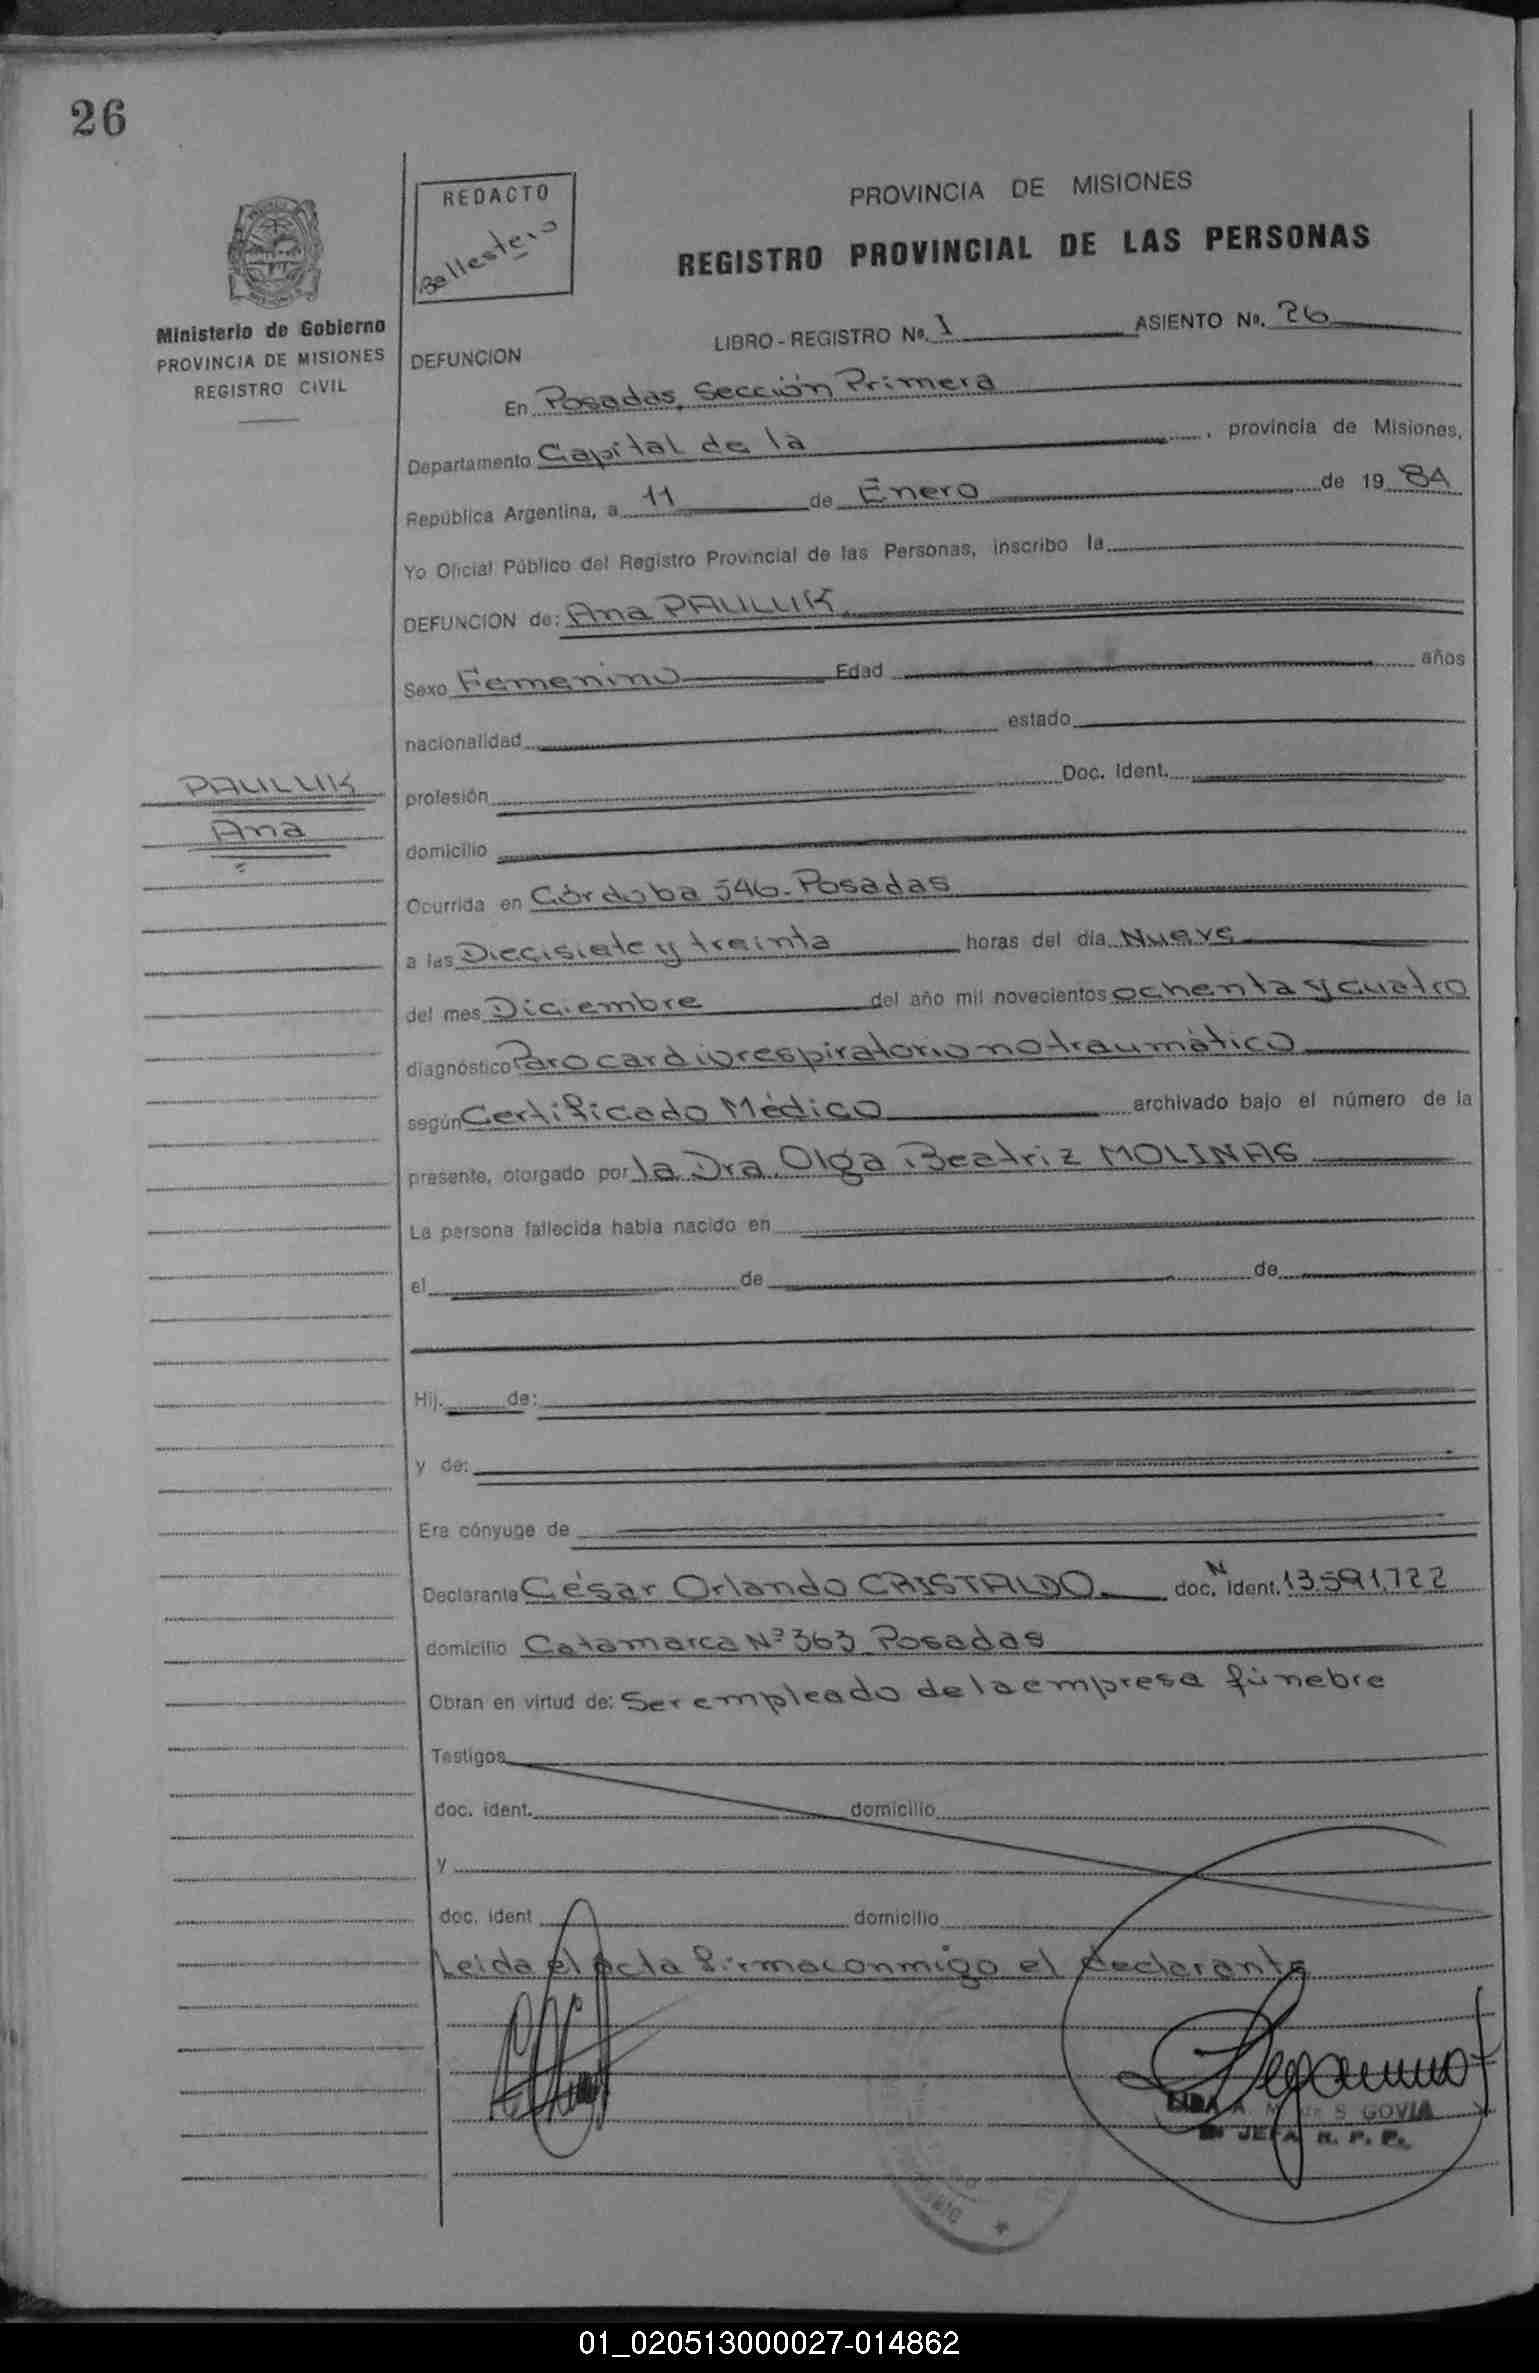 26
REDACTO
Ballestero
PROVINCIA DE MISIONES
REGISTRO PROVINCIAL DE LAS PERSONAS
Ministerio de Gobierno
PROVINCIA DE MISIONES
REGISTRO CIVIL
LIBRO - REGISTRO No. 1 ASIENTO No. 26
DEFUNCION
En Posadas, Sección Primera
Departamento Capital de la , provincia de Misiones,
República Argentina, a 11 de Enero de 19 84
Yo Oficial Público del Registro Provincial de las Personas, inscribo la
DEFUNCION de: Ana PAULUK
Sexo Femenino Edad años
nacionalidad estado
PAULUK
profesión Doc. Ident.
Ana
domicilio
Ocurrida en Córdoba 546 - Posadas
a las Diecisiete y treinta horas del día Nueve
del mes Diciembre del año mil novecientos ochenta y cuatro
diagnóstico Paro cardiorespiratorio no traumático
según Certificado Médico archivado bajo el número de la
presente, otorgado por la Dra. Olga Beatriz MOLINAS
La persona fallecida había nacido en
el de de
Hij. de:
y de:
Era cónyuge de
Declarante César Orlando CRISTALDO doc. N ident. 13.591.722
domicilio Catamarca Nº 363 Posadas
Obran en virtud de: Ser empleado de la empresa fúnebre
Testigos
doc. ident. domicilio
y
doc. ident domicilio
Leida el acta firma conmigo el declarante
S GOVIA
JEFA R. P. P.
01_020513000027-014862